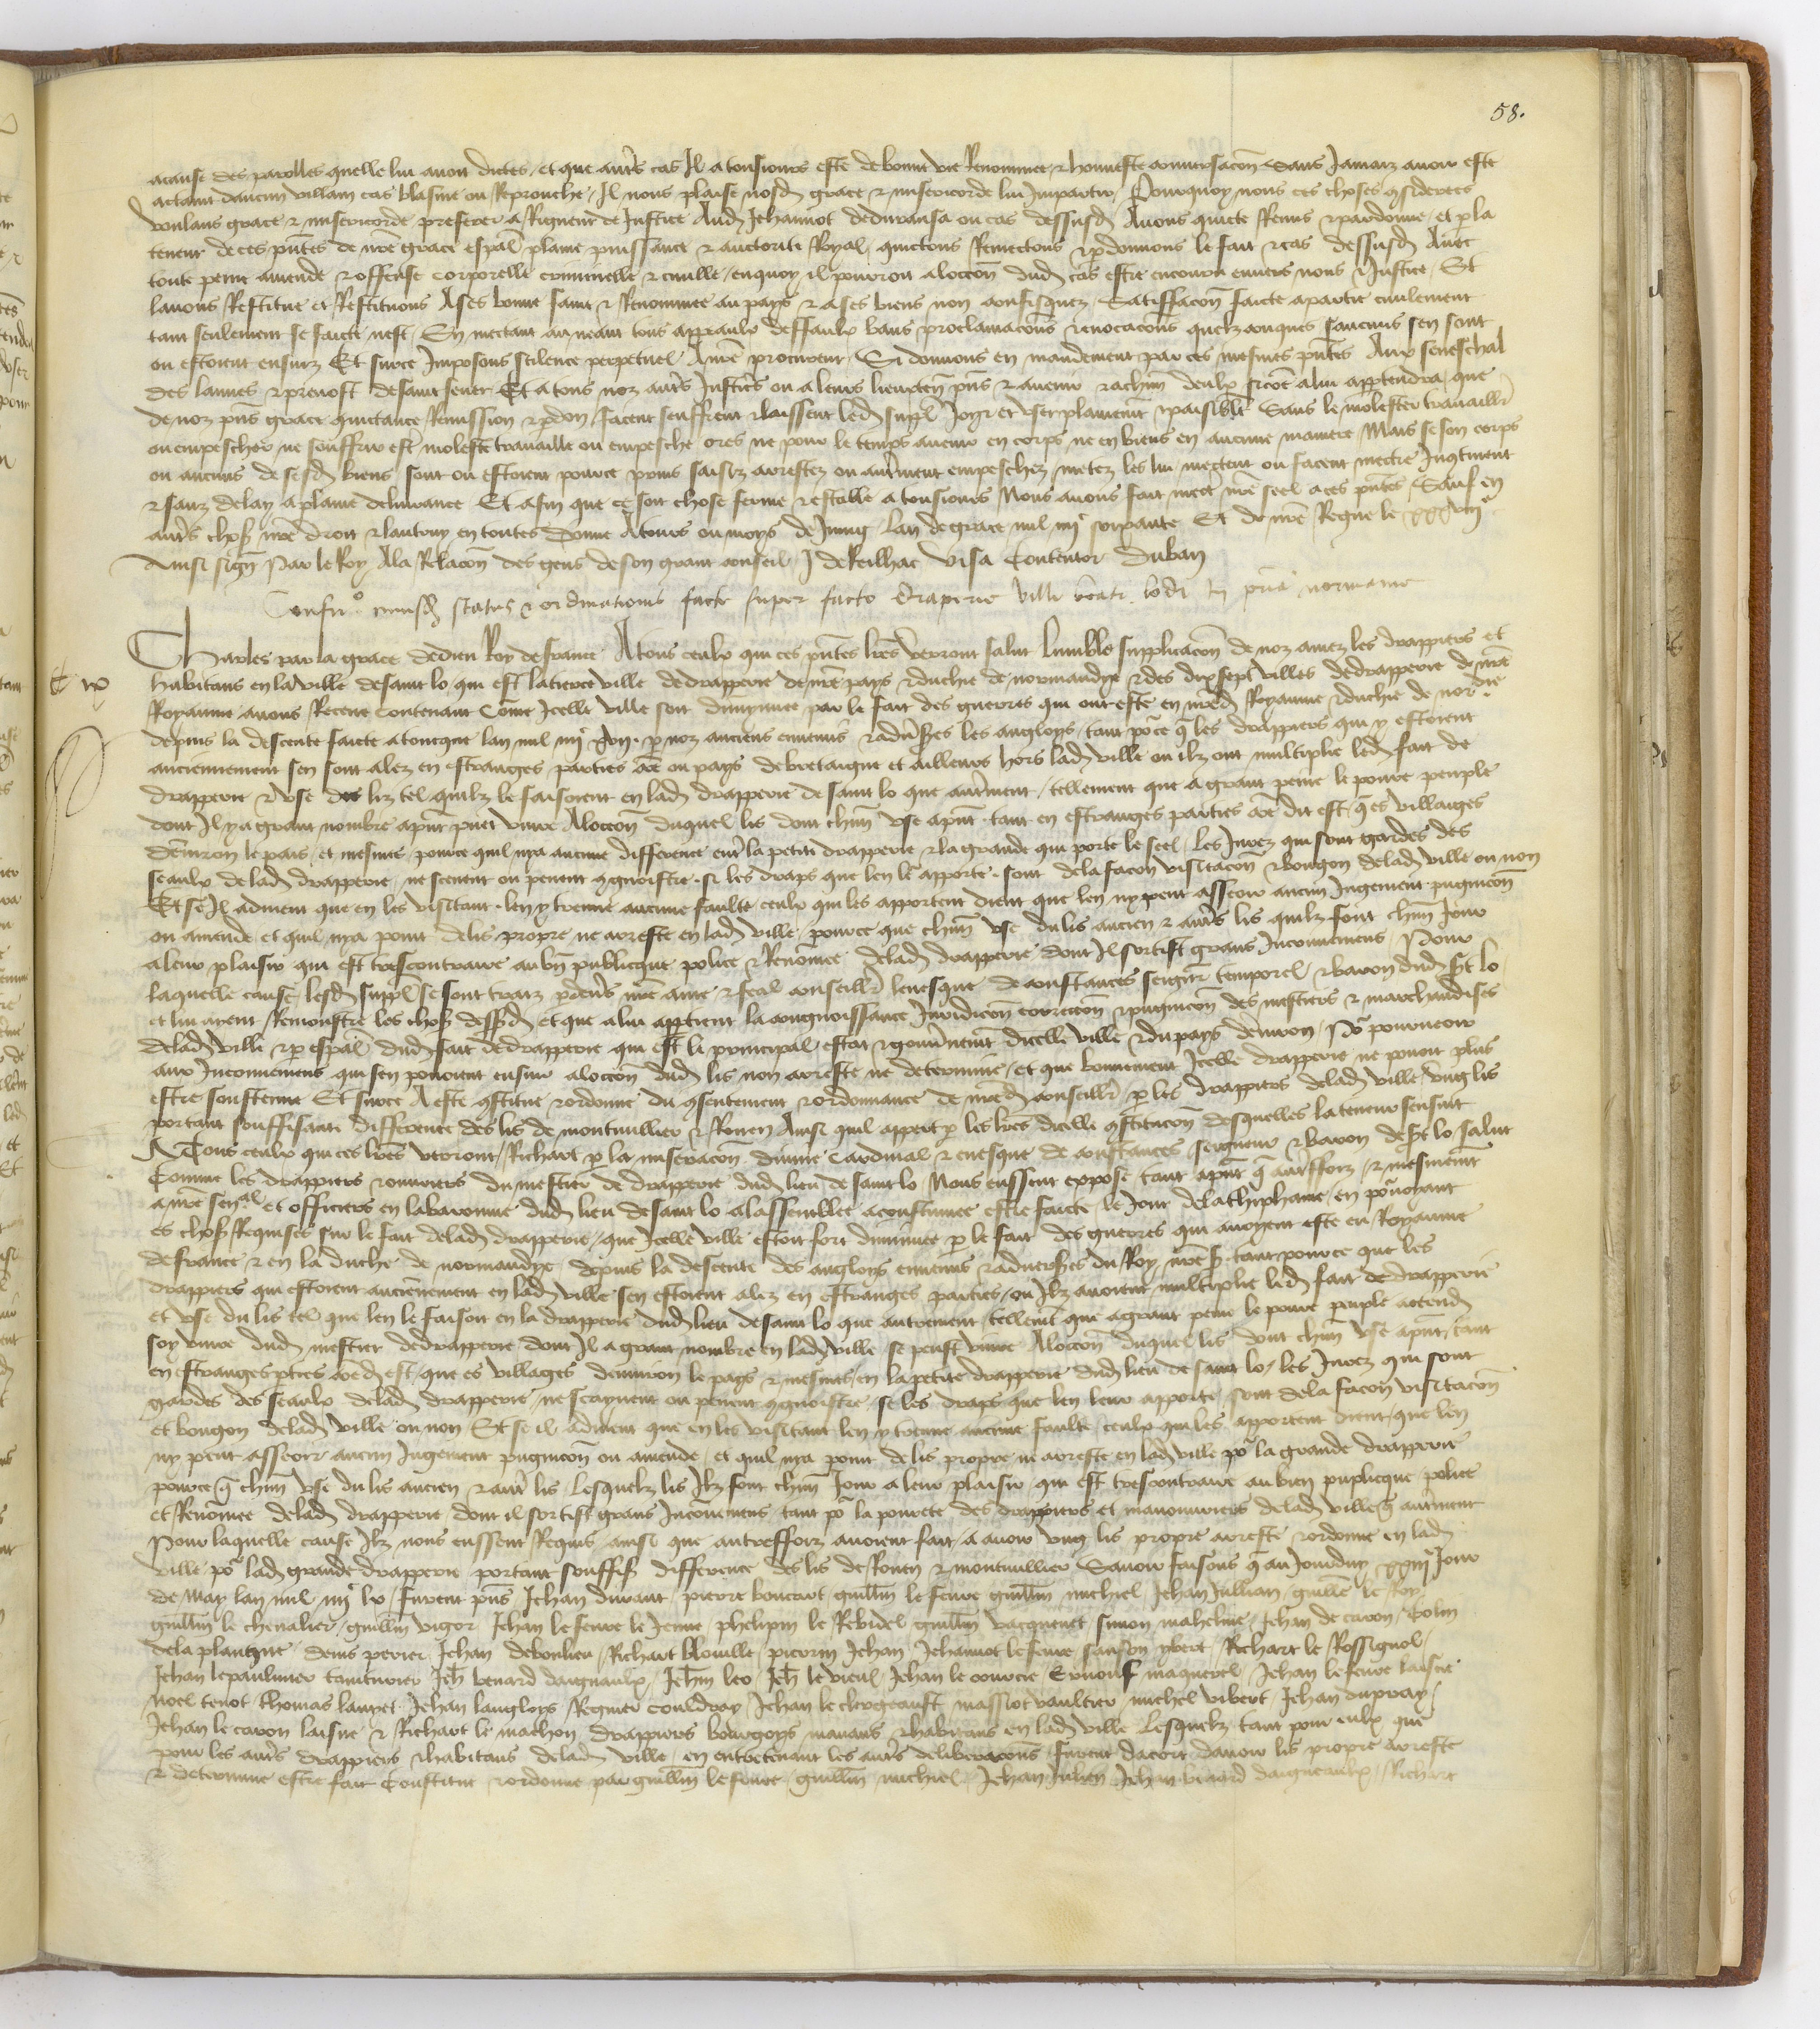 58.
acause des parolles quelle lui avoit dictes / et que autrs cas Il a tousiours este de bonne vie Renommee & honneste conversacon Sans Jamais avoir este
actaint daucun villain cas blasme ou Reprouche / Il nous plaise nosd grace & misericorde lui Impartir / Pourquoy nous ces choses gsiderees
voulans grace & misericorde preferer a Rigueur de Justice Aud Jehannot deduransa ou cas dessusd Avons quicte Remis & pardonne / et p la
teneur de ces pntes de nre grace espal plaine puissance & auctorite Royal quictons Remectons & pdonnons le fait & cas dessusd Avec
toute peine amende & offense corporelle criminelle & civille / enquoy il pourroit aloccon dud cas estre encouru envers nous & Justice / Et
lavons Restitue et Restituons A ses bonne fame & Renommee au pays & a ses biens non confisquez / Satisfacon faicte apartie civilement
tant seulement se faicte nest / En mectant au neant tous appeaulx deffaulx bans proclamacons & evocacons quelzconques saucuns sen sont
ou estoient ensuiz Et surce Imposons scilence perpetuel A nre procureur / Si donnons en mandement par ces mesmes pntes Aux seneschal
des lannes & prevost de saint sever Et a tous noz autrs Justicrs ou a leurs lieuxten pns & avenir & achun deulx sicoe a lui appartendra / que
de noz pns grace quictance Remission & pdon / facent seuffrent & laissent led suppl Joyr et user plainemt & paisiblt Sans le molester travaillr
ou empescher ne souffrir est moleste travaille ou empesche ores ne pour le temps avenir en corps ne en biens en aucune maniere Mais se son corps
ou aucuns de sesd biens sont ou estoient pource prins saisiz arrestez ou autrment empeschez metez les lui mectent ou facent mectre Incontinent
& sans delay a plaine delivrance Et afin que ce soit chose ferme & estable a tousiours Nous avons fait mectr nre seel a ces pntes / Sauf en
autrs chos nre droit & lautruy en toutes Donne A tours ou moys de Juing lan de grace mil iiiic soixante Et de nre Regne le xxxviiie
Ainsi signe Par le Roy Ala Relacon des gens de son grant conseil J de Reilhac Visa Contentor Duban
Confir.o cuiusd status & ordinationis facte super facto draperie ville beati lodi in pria normanie
Charles par la grace de dieu Roy de france A tous ceulx qui ces pntes lres verront salut lumble supplicacon de noz amez les drappiers et
habitans en la ville de saint lo / qui est la tierce ville de drapperie de nre pays & duchie de normandye & des dix sept villes de drapperie de nre
Royaume avons Receue Contenant Come Icelle ville soit diminuee par le fait des guerres qui ont este en nred Royaume & duchie de nordie
depuis la descente faicte a toucque lan mil iiiic xvii. p noz anciens ennemis & adusres les angloys / tant poce q les drappiers qui y estoient
anciennement sen sont alez en estranges parties coe ou pays de bretaigne et ailleurs hors lad ville ou ilz ont multiplie led fait de
drapperie & use des liz tel quilz le faisoient en lad drapperie de saint lo que autrment / tellement que a grant peine le povre peuple
dont Il y a grant nombre apnt puet vivre Aloccon duquel lis dont chun use apnt tant en estranges parties coe dit est / q es villaiges
denviron le pais / et mesmes pource quil nya aucune difference entr la petite drapperie & la grande qui porte le seel / Les Jurez qui sont gardes des
seaulx de lad drapperie / ne scevent ou pevent gnoistre si les draps que len lr apporte sont de la facon visitacon & bougon de lad ville ou non
Et se Il advient que en les visitant / len y treuve aucune faulte ceulx qui les apportent dient que len ny peut asseoir aucun Jugement pugnicon
ou amende / et quil nya point de lis propre ne arreste en lad ville / pource que chun use du lis ancien & autrs lis quilz font chun Jour
a leur plaisir qui est trescontraire au bn publicque police & Renomee de lad drapperie dont Il sortist grans Inconveniens / Pour
laquelle cause lesd suppl se sont traiz pdevrs nre ame & feal conseillr levesque de constances seignr temporel & baron dud St lo
et lui aient Remonstre les chos dessd / et que a lui appartient la congnoissance Juridicon correccon & pugnicon des mestiers & marchandises
de lad ville & p espal dud fait de drapperie qui est le principal estat & gouvnemt dicelle ville & du pays denviron / Por pourveoir
aux Inconveniens qui sen povoient ensuir aloccon dud lis non arreste ne determine / et que bonnement Icelle drapperie ne povoit plus
estre soustenue Et surce A este gstitue & ordonne du gsentement & ordonnance de nred conseillr p les drappiers de lad ville / ung lis
portant souffisante difference des lis de montivillier & Rouen Ainsi quil appert p les lres dicelle gstitucon desquelles la teneur sensuit
A Tous ceulx qui ces lres verront / Richart p la miseracon divine Cardinal & evesque de constances / seigneur & baron de St lo salut
Comme les drappiers & ouvriers du mestier de drapperie dud lieu de saint lo Nous eussent expose tant apnt q autrffoiz / & mesmemt
a nre senal et officiers en la baronnie dud lieu de saint lo a lassemblee acoustumee estre faicte le Jour de la thiphaine / en porvoyant
es chos Requises sur le fait de lad drapperie / que Icelle ville estoit fort diminuee p le fait des guerres qui avoyent este en Royaume
de france & en la duche de normandye depuis la descente des angloys ennemis & adversres du Roy nre s. tant pource que les
drappiers qui estoient anciennement en lad ville sen estoient alez en estranges parties / ou Ilz avoient multiplie led fait de drapperie
et use du lis tel que len le faisoit en la drapperie dud lieu de saint lo que autrement / tellemt que a grant peine le povre peuple actend
soy vivre dud mestier de drapperie dont Il a grant nombre en lad ville / se peust vivre Aloccon duquel lis dont chun use apnt / tant
en estranges pties coed est / que es villages denviron le pays & mesmes / en la petite drapperie dud lieu de saint lo / les Jurez qui sont
gardes des seaulx de lad drapperie / ne scayvent ou pevent gnoistre se les draps que len leur apporte sont de la facon visitacon
et bougon de lad ville ou non Et se il advient que en les visitant len y treuve aucune faulte ceulx qui les apportent dient / que len
ny peut asseoir aucun Jugement pugnicon ou amende / et quil nya point de lis propre ne arreste en lad ville por la grande drapperie
pource q chun use du lis ancien & autr lis Lesquelz lis Ilz font chun Jour a leur plaisir qui est trescontraire au bien puplicque police
et Renomee de lad drapperie dont il sortist grans Inconveniens / tant por la povrete des drappiers et manouvriers de lad ville q autrment
Pour laquelle cause Ilz nous eussent Requis ainsi que autreffoiz avoient fait / a avoir ung lis propre arreste & ordonne en lad
ville por lad grande drapperie portant souffis difference des lis de Rouen & montivillier Savoir faisons q au Jourduy xxiiie Jour
de May lan mil iiiic lx / furent pns / Jehan durant / pierre bouvrot guillm le fevre guillm michiel Jehan Jullian / guille le Roy
guillm le chevalier / guillm vigor Jehan le fevre le Jeune phelipin le Rebidel guillm vacquenet / simon maheline / Jehan de caron / Colin
de la planque / denis perier Jehan deboulieu / Richart blouville / picorin Jehan / Jehannot lefevre sanson ybert / Richart le Rossignol /
Jehan lepaulmier taincturier Jeh benard daigneaulx / Jehan leo / Jeh le viel Jehan le courtie / Ernouf maquerel / Jehan lefevre laisne
Noel tenot thomas lanyet Jehan langloys Regnier couldray / Jehan le clergeault massiot vaultier / michel vibert / Jehan dupray /
Jehan le caron laisne & Richart le machon drappiers bourgoys manans & habitans en lad ville Lesquelz tant pour eulx que
pour les autrs drappiers & habitans de lad ville / en entretenant les autrs deliberacons / furent dacort davoir lis propre arreste
& determine estre fait Constitue & ordonne par guillm lefevre / guillm michiel / Jehan Julien Jehan benard daigneaulx / Richart